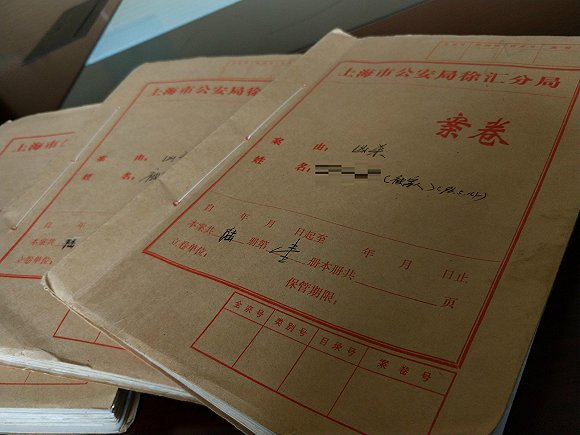 上海市公安局徐汇分局
案卷
案 由：凶杀
姓 名：
自 年 月 日起至 年 月 日止
本案共 陆 册第 壹 册本册共 页
立卷单位：
保管期限：
全宗号 类别号 目录号 案卷号
上海市公安局徐
案 由：凶杀
姓 名：
自 年 月
本案共 陆
立卷单位：
上海市